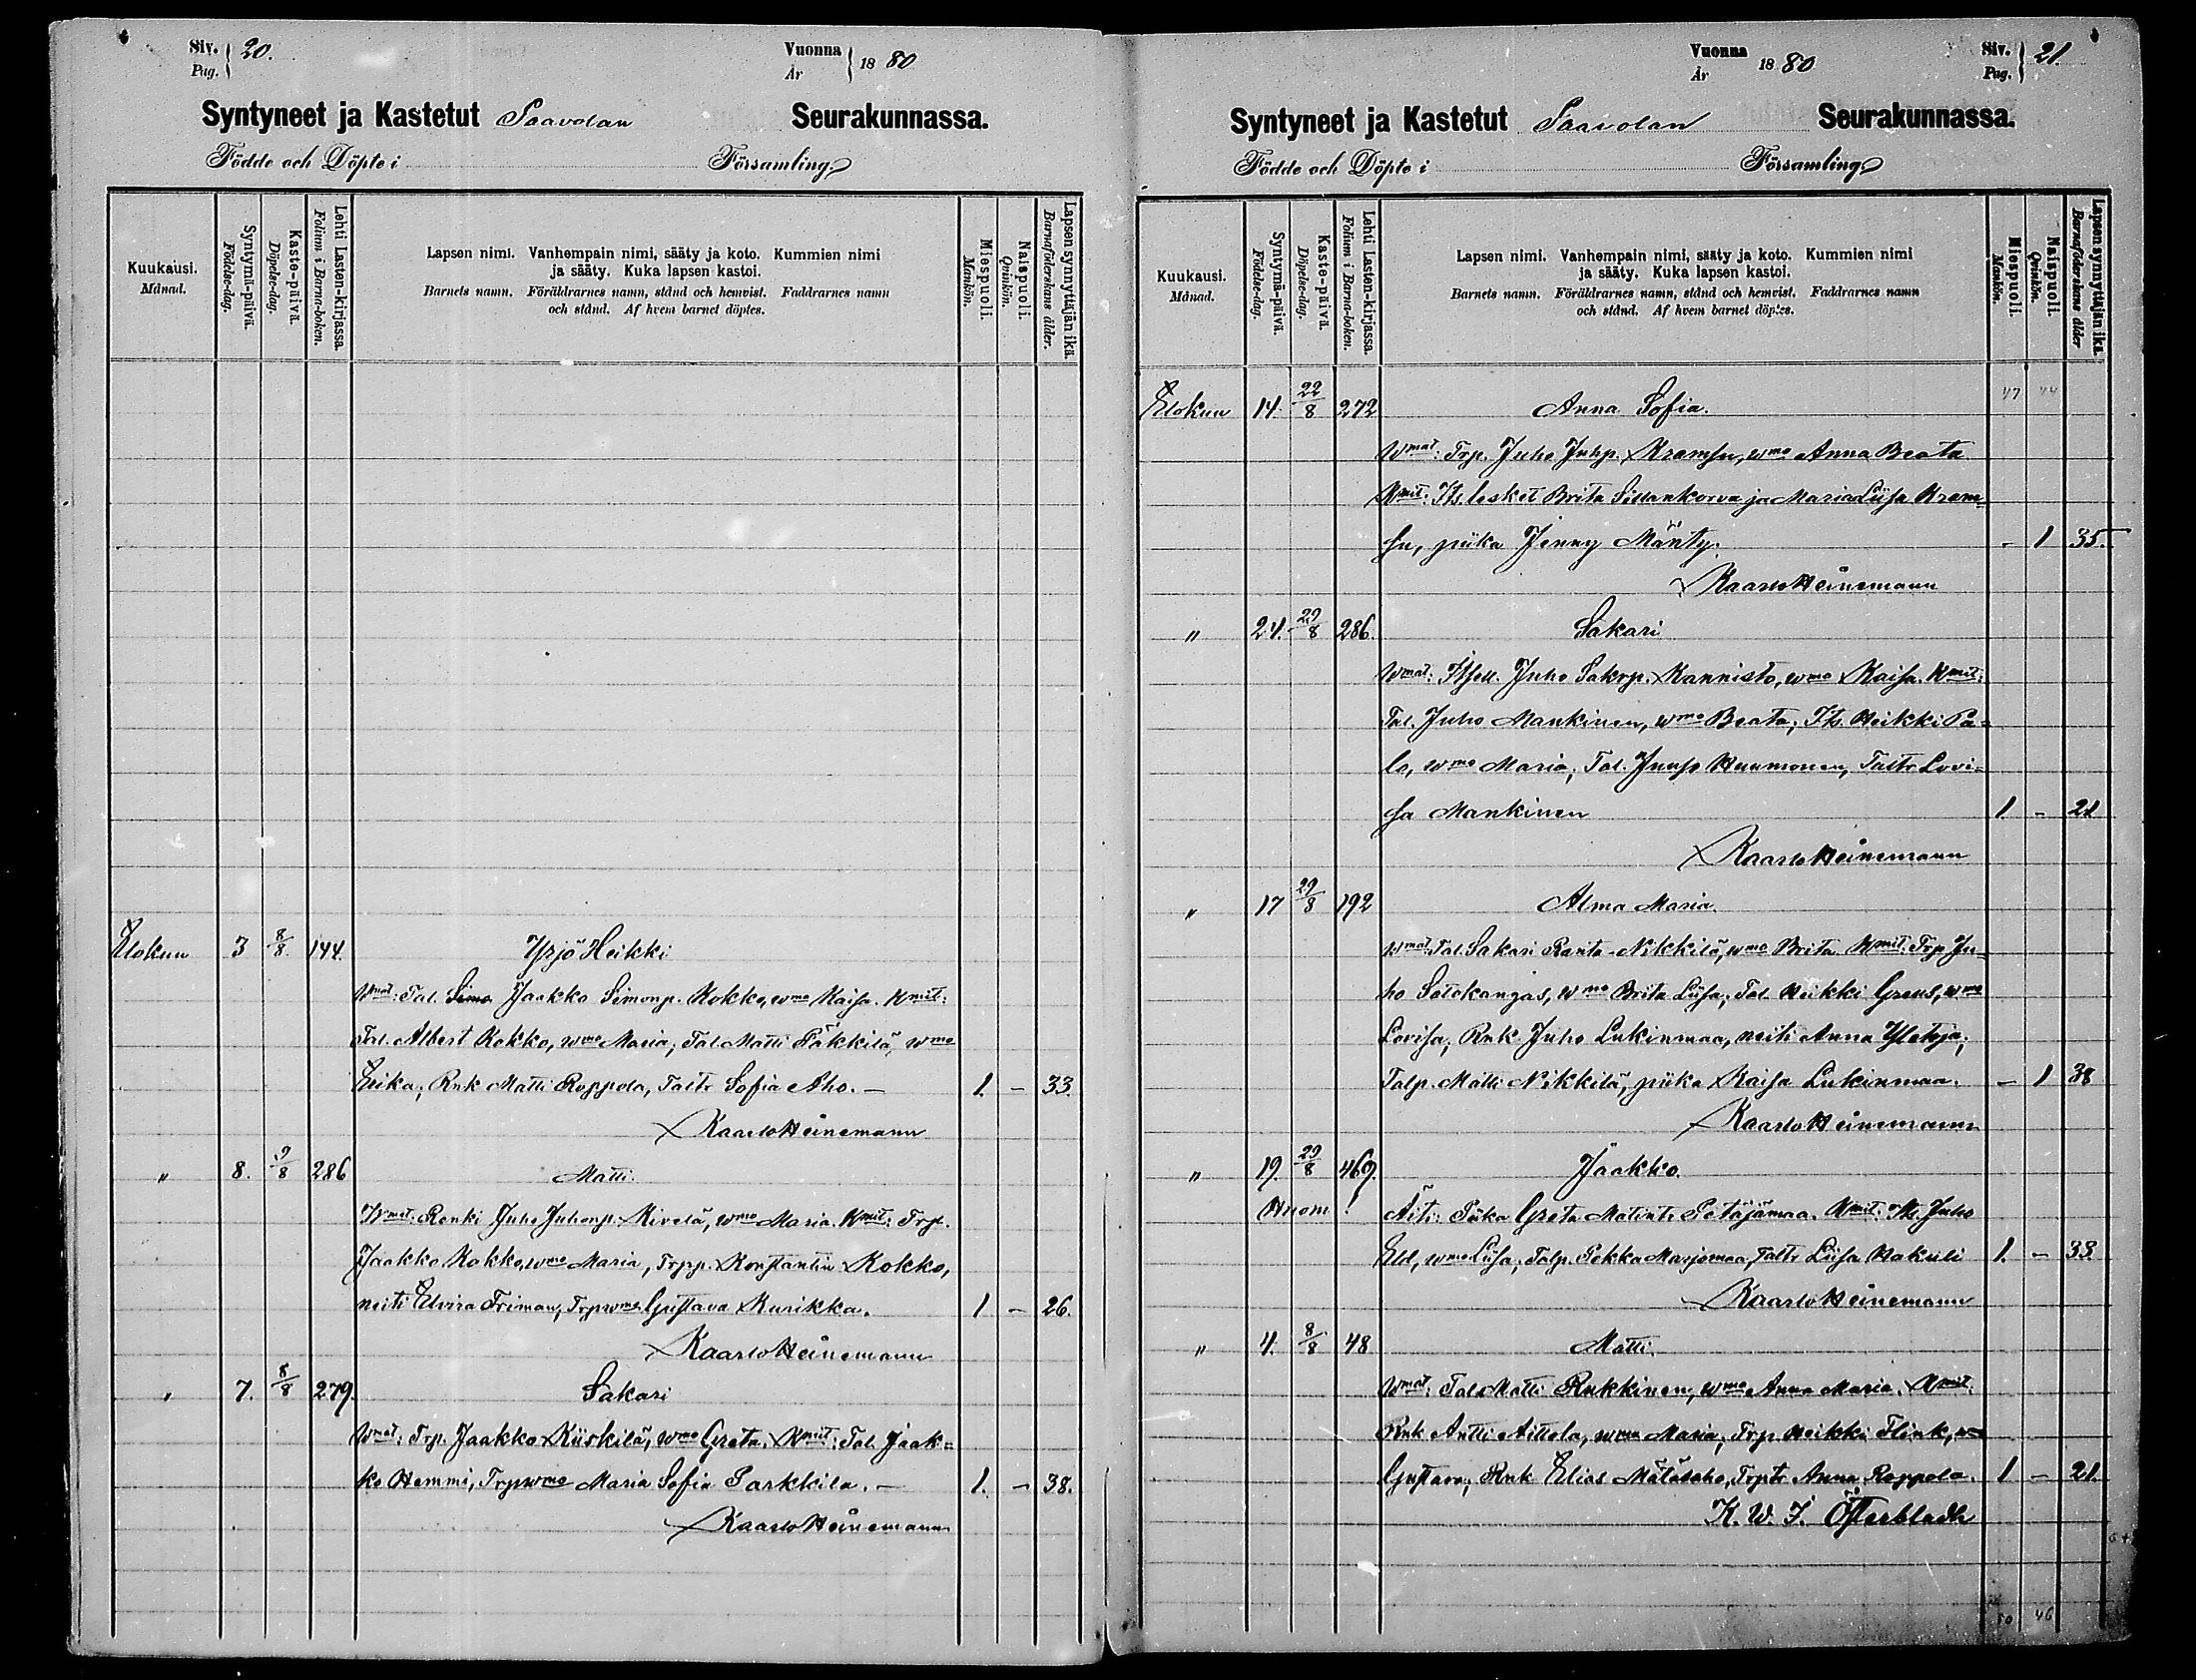 Siv. Pag. 20.
Vuonna År 1880
Syntyneet ja Kastetut Saavolan Seurakunnassa.
Födde och Döpte i Församling
Kuukausi. Månad.
Syntymä-päivä. Födelse-dag.
Kaste-päivä. Döpelse-dag.
Lehti Lasten-kirjassa. Folium i Barna-boken.
Lapsen nimi. Vanhempain nimi, sääty ja koto. Kummien nimi
ja sääty. Kuka lapsen kastoi.
Barnets namn. Föräldrarnes namn, stånd och hemvist. Faddrarnes namn
och stånd. Af hvem barnet döptes.
Miespuoli. Mankön.
Naispuoli. Qvinkön.
Lapsen synnyttäjän ikä. Barnaföderskans ålder.
Elokuu 3 8/8. 144. Yrjö Heikki
Wmat: Tal. Simo Jaakko Simonp. Kokko, wmo Kaisa. Kmit:
Tal. Albert Kokko, wmo Maria; Tal. Matti Päkkilä, wmo
Erika; Rnk Matti Roppola, Taltr Sofia Aho. — 1. – 33.
Kaarlo Heinemann
" 8. 9/8 286 Matti.
Wmat: Renki Juho Juhonp. Kivelä, wmo Maria. Kmit: Trp.
Jaakko Kokko, wmo Maria, Trpp. Konstantin Kokko,
neiti Elvira Friman, Trpwmo Gustava Kurikka. 1 – 26.
Kaarlo Heinemann
" 7. 8/8 279. Sakari
Wmat: Trp. Jaakko Kiiskilä, wmo Greta. Kmit: Tal. Jaak=
ko Hemmi, Trpwmo Maria Sofia Parkkila. — 1. – 38.
Kaarlo Heinemann
Vuonna År 1880
Siv. Pag. 21.
Syntyneet ja Kastetut Saavolan Seurakunnassa.
Födde och Döpte i Församling
Kuukausi. Månad.
Syntymä-päivä. Födelse-dag.
Kaste-päivä. Döpelse-dag.
Lehti Lasten-kirjassa. Folium i Barna-boken.
Lapsen nimi. Vanhempain nimi, sääty ja koto. Kummien nimi
ja sääty. Kuka lapsen kastoi.
Barnets namn. Föräldrarnes namn, stånd och hemvist. Faddrarnes namn
och stånd. Af hvem barnet döptes.
Miespuoli. Mankön.
Naispuoli. Qvinkön.
Lapsen synnyttäjän ikä. Barnaföderskans ålder
Elokuu 14. 22/8 272 Anna Sofia. 47 44
Wmat: Trp. Juho Juhp. Kramsu, wmo Anna Beata
Kmit: Its. lesket Brita Sillankorva ja Maria Liisa Kram=
su, piika Jenny Mänty. – 1 35.
Kaarlo Heinemann
" 24. 29/8 286. Sakari
Wmat: Itsell. Juho Sakrp. Kannisto, wmo Kaisa. Kmit:
Tal. Juho Mankinen, wmo Beata; Its. Heikki Pa=
lo, wmo Maria; Tal. Juuso Huumonen, Taltr Lovi=
sa Mankinen 1 – 21
Kaarlo Heinemann
" 17 29/8 192 Alma Maria.
Wmat: Tal. Sakari Ranta-Nikkilä, wmo Brita. Kmit: Trp. Ju=
ho Sotokangas, wmo Brita Liisa; Tal. Heikki Greus, wmo
Lovisa; Rnk Juho Lukinmaa, neiti Anna Yletyja;
Talp. Matti Nikkilä, piika Kaisa Lukinmaa. – 1 38
Kaarlo Heinemann
" 19. 29/8 469. Jaakko.
Huom! Äiti: Piika Greta Matintr Petäjämaa. Kmit: Its. Juho
Eld, wmo Liisa; Talp. Pekka Marjomaa, Taltr Liisa Hakuli 1. – 33.
Kaarlo Heinemann
" 4. 8/8 48 Matti.
Wmat: Tal. Matti Rukkinen, wmo Anna Maria. Kmit:
Rnk Antti Aittola, wmo Maria; Trp. Heikki Flink, wmo
Gustava; Rnk Elias Mätäsaho, Trptr Anna Roppola. 1 – 21.
K. W. J. Österbladh
50 46